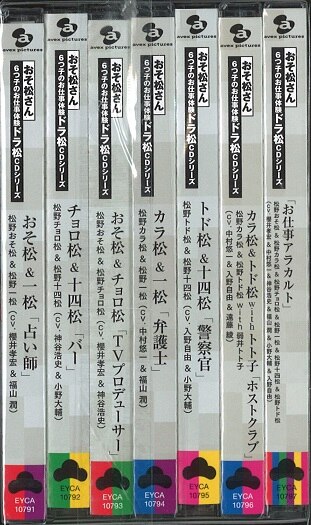 avex pictures
おそ松さん
6つ子のお仕事体験ドラ松CDシリーズ
おそ松&一松「占い師」
松野おそ松&松野一松(cv.櫻井孝宏&福山潤)
EYCA
10791
avex pictures
おそ松さん
6つ子のお仕事体験ドラ松CDシリーズ
チョロ松&十四松「バー」
松野チョロ松&松野十四松(cv.神谷浩史&小野大輔)
EYCA
10792
avex pictures
おそ松さん
6つ子のお仕事体験ドラ松CDシリーズ
おそ松&チョロ松「TVプロデューサー」
松野おそ松&松野チョロ松(cv.櫻井孝宏&神谷浩史)
EYCA
10793
avex pictures
おそ松さん
6つ子のお仕事体験ドラ松CDシリーズ
カラ松&一松「弁護士」
松野カラ松&松野一松(cv.中村悠一&福山潤)
EYCA
10794
avex pictures
おそ松さん
6つ子のお仕事体験ドラ松CDシリーズ
トド松&十四松「警察官」
松野トド松&松野十四松(cv.入野自由&小野大輔)
EYCA
10795
avex pictures
おそ松さん
6つ子のお仕事体験ドラ松CDシリーズ
カラ松&トド松withトト子「ホストクラブ」
松野カラ松&松野トド松with弱井トト子
(cv.中村悠一&入野自由&遠藤綾)
EYCA
10796
avex pictures
おそ松さん
6つ子のお仕事体験ドラ松CDシリーズ
「お仕事アラカルト」
松野おそ松&松野カラ松&松野チョロ松&松野一松&松野十四松&松野トド松
(cv.櫻井孝宏&中村悠一&神谷浩史&福山潤&小野大輔&入野自由)
EYCA
10797